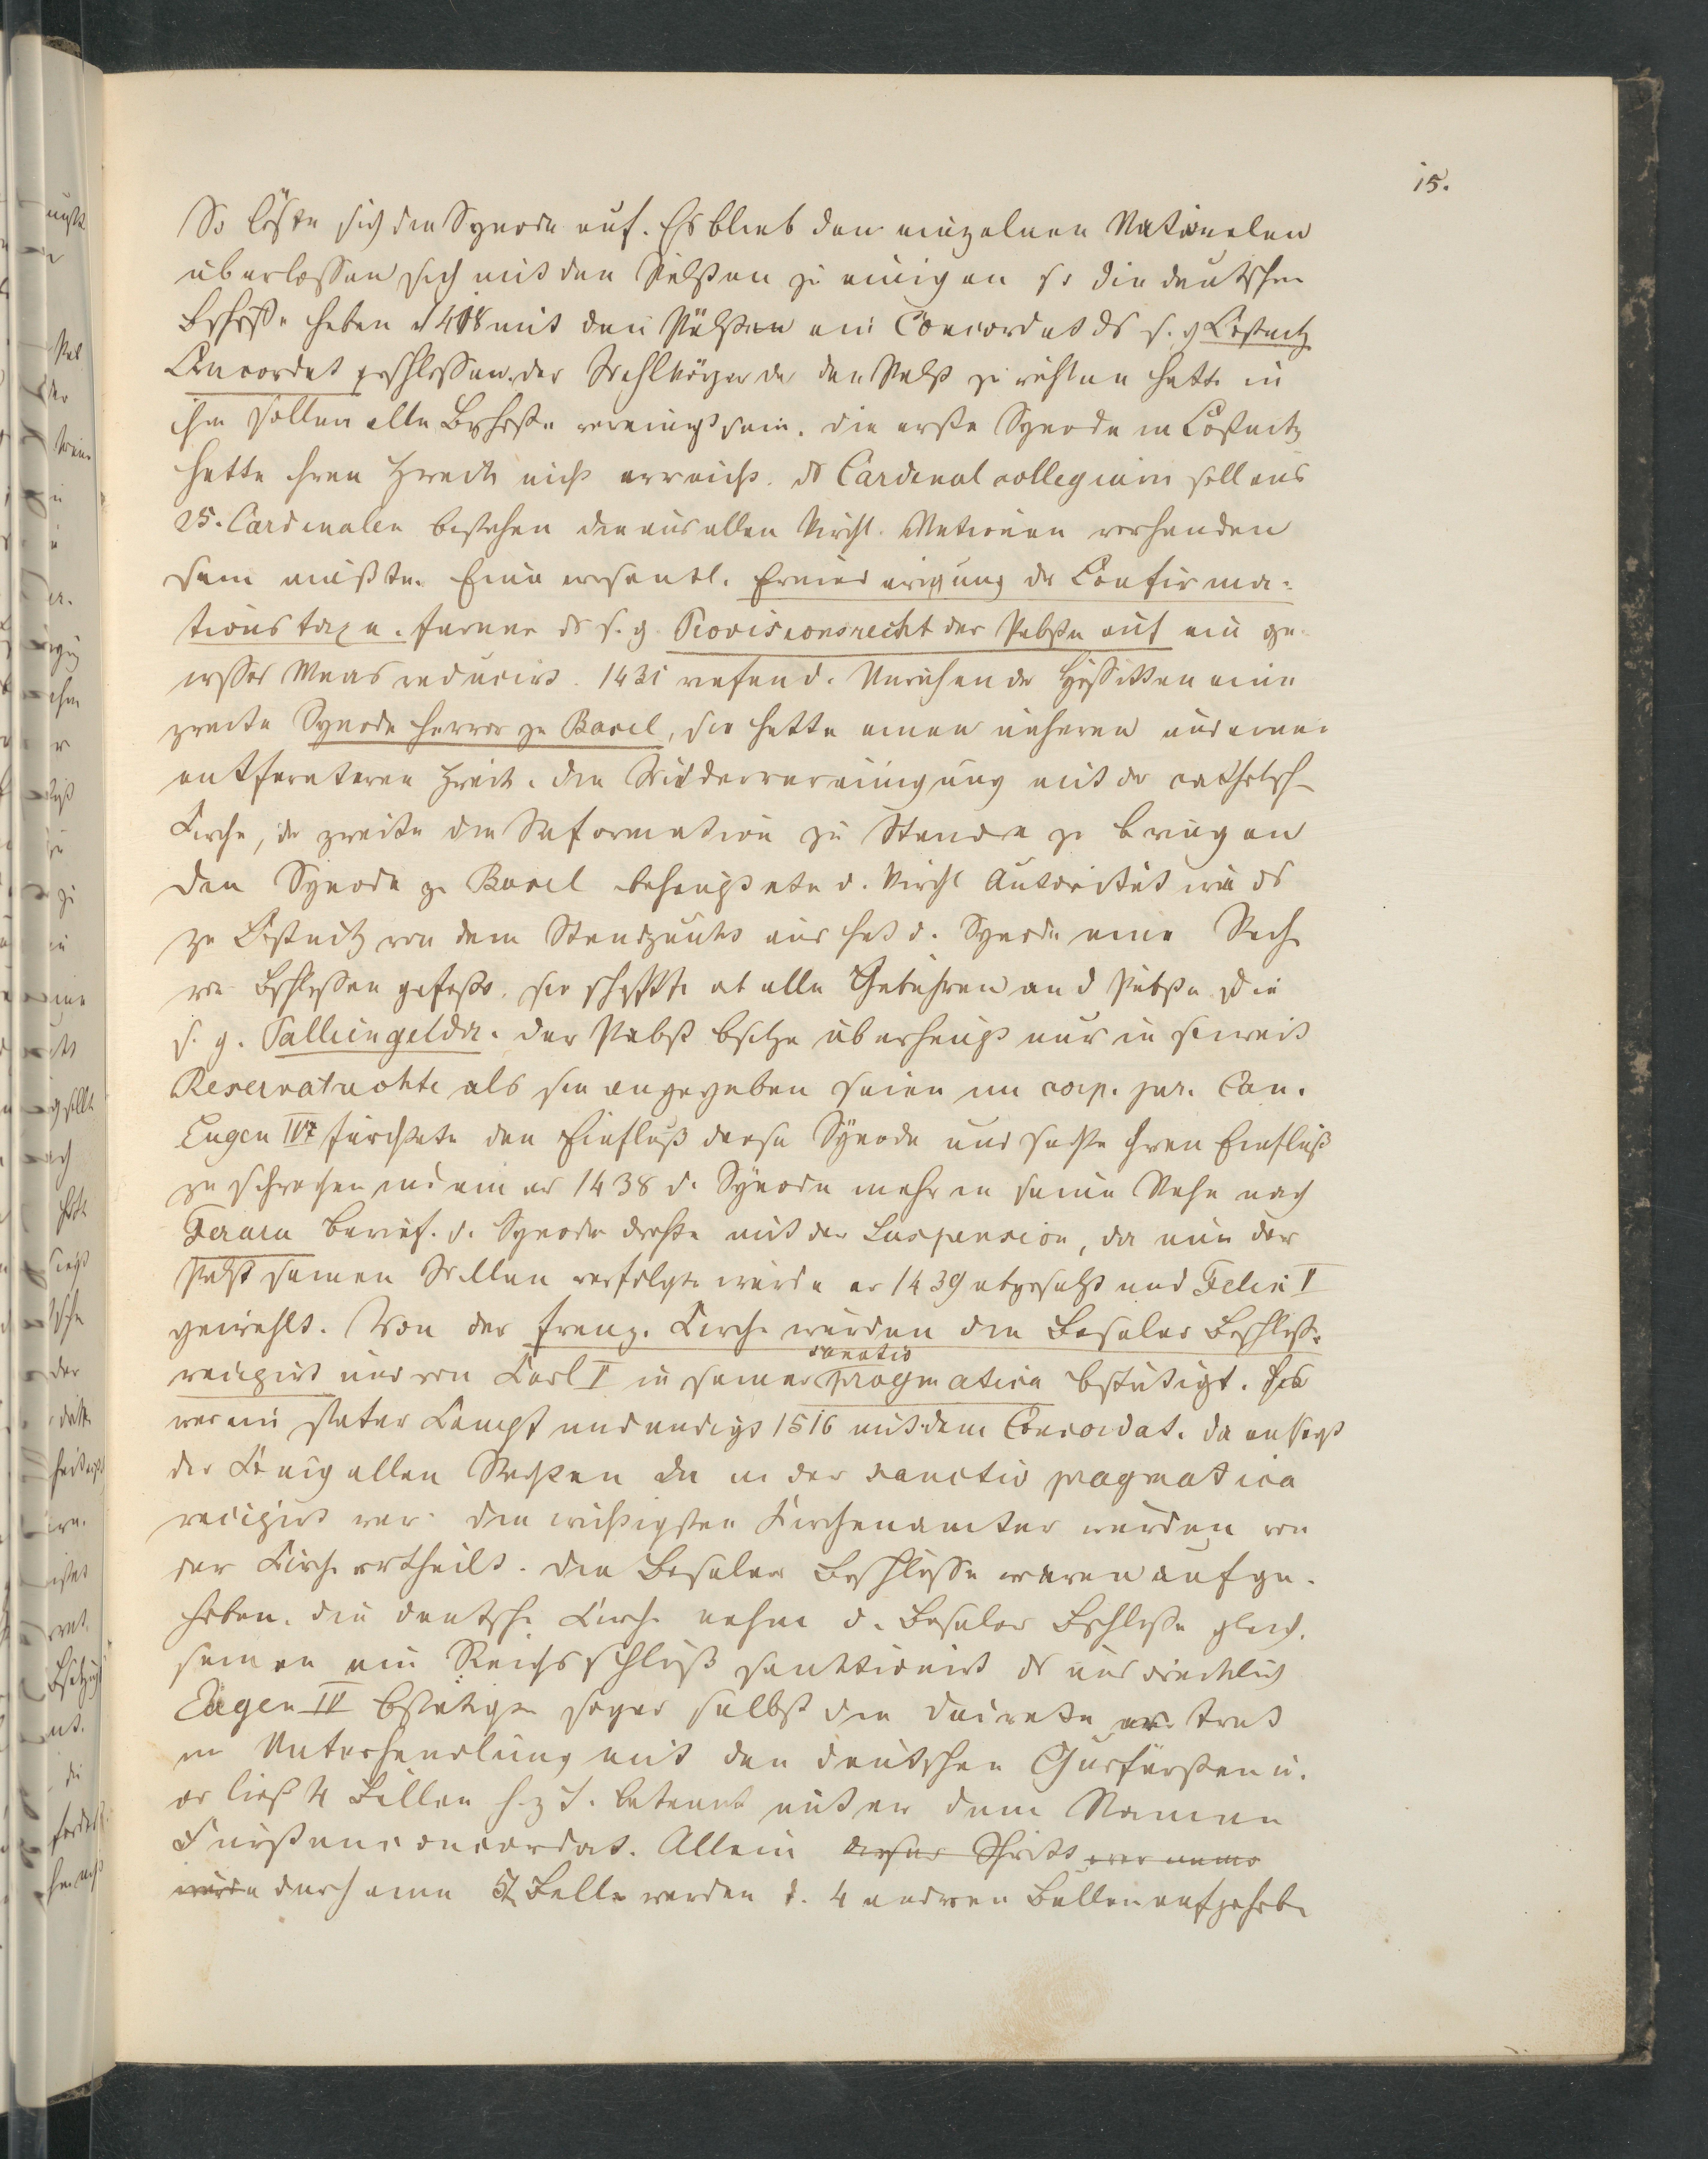 15.
So löste sich die Synode auf. Es blieb den einzelnen Nationalen
überlassen sich mit den Päbsten zu einigen so die deutschen
Bischöffe haben 1418 mit den Päbsten ein Concordat ds s. g Costnitz
Concordat geschlossen. der Wahlkörper der den Pabst zu wählen hatte in
ihm sollen alle Bischöffe vereinigt sein. die erste Synode in Costnitz
hatte ihren Zweck nicht erreicht. ds Cardinal collegium soll aus
25. Cardinalen bestehen die aus allen kirchl. Nationen vorhanden
sein mußten. Eine wesentl. Erniedrigung der Confirma-
tionstaxen. ferner ds s. g. Provisionsrecht der Päbste auf ein ge-
wisses Maas reducirt. 1431 riefen d. Unruhen der Hussitten eine
zweite Synode hervor zu Basel, sie hatte einen näheren und einen
entfernteren Zweck. die Wiedervereinigung mit der catholisch
Kirche, der zweite die Reformation zu Stande zu bringen
Den Synode zu Basel behauptete d. kirchl Autorität wie ds
zu Costnitz von dem Standpunkt aus hat d. Synode eine Reih
von Bschlüssen gefaßt. sie schaffte ab alle Gebühren an d Päbste die
s. g. Palliengelder. der Pabst bsitze überhaupt nur in soweit
Reservatrechte als sie angegeben seien im corp. jur. Can.
Eugen IV fürchtete den Einfluß dieser Synode und suchte ihren Einfluß
zu schwächen indem er 1438 d. Synode mehr in seine Nähe nach
Ferara berief. d. Synode drohte mit der Suspension, da nun der
Pabst seinen Willen verfolgte wurde er 1439 abgesetzt und Felix V
gewählt. Von der franz. Kirche wurden die Baseler Beschlüsse
recipirt und von Carl V in seiner sanctio pragmatica bstätigt. Es
war ein steter Kampf und endigt 1516 mit dem Concordat. da entsagt
der König allen Rechten die in der sanctio pragmatica
recipirt war. die wichtigsten Kirchenämter wurden von
der Kirche ertheilt. die Baseler Beschlüsse waren aufge-
hoben. die deutsche Kirche nahm d. Baseler Bschlüsse gleich.
sam an ein Reichsschluß sanktionirt ds ausdrücklich
Eugen IV bstätigte sogar selbst die Decrete er trat
in Unterhandlung mit den deutschen Curfürsten u.
er ließ 4 Bullen h. z T. bekannt unter dem Namen
Fürstenconcordat. Allein dieser Schritt
wurde durch eine 5t Bulle werden d. 4 anderen Bullen aufgehobe